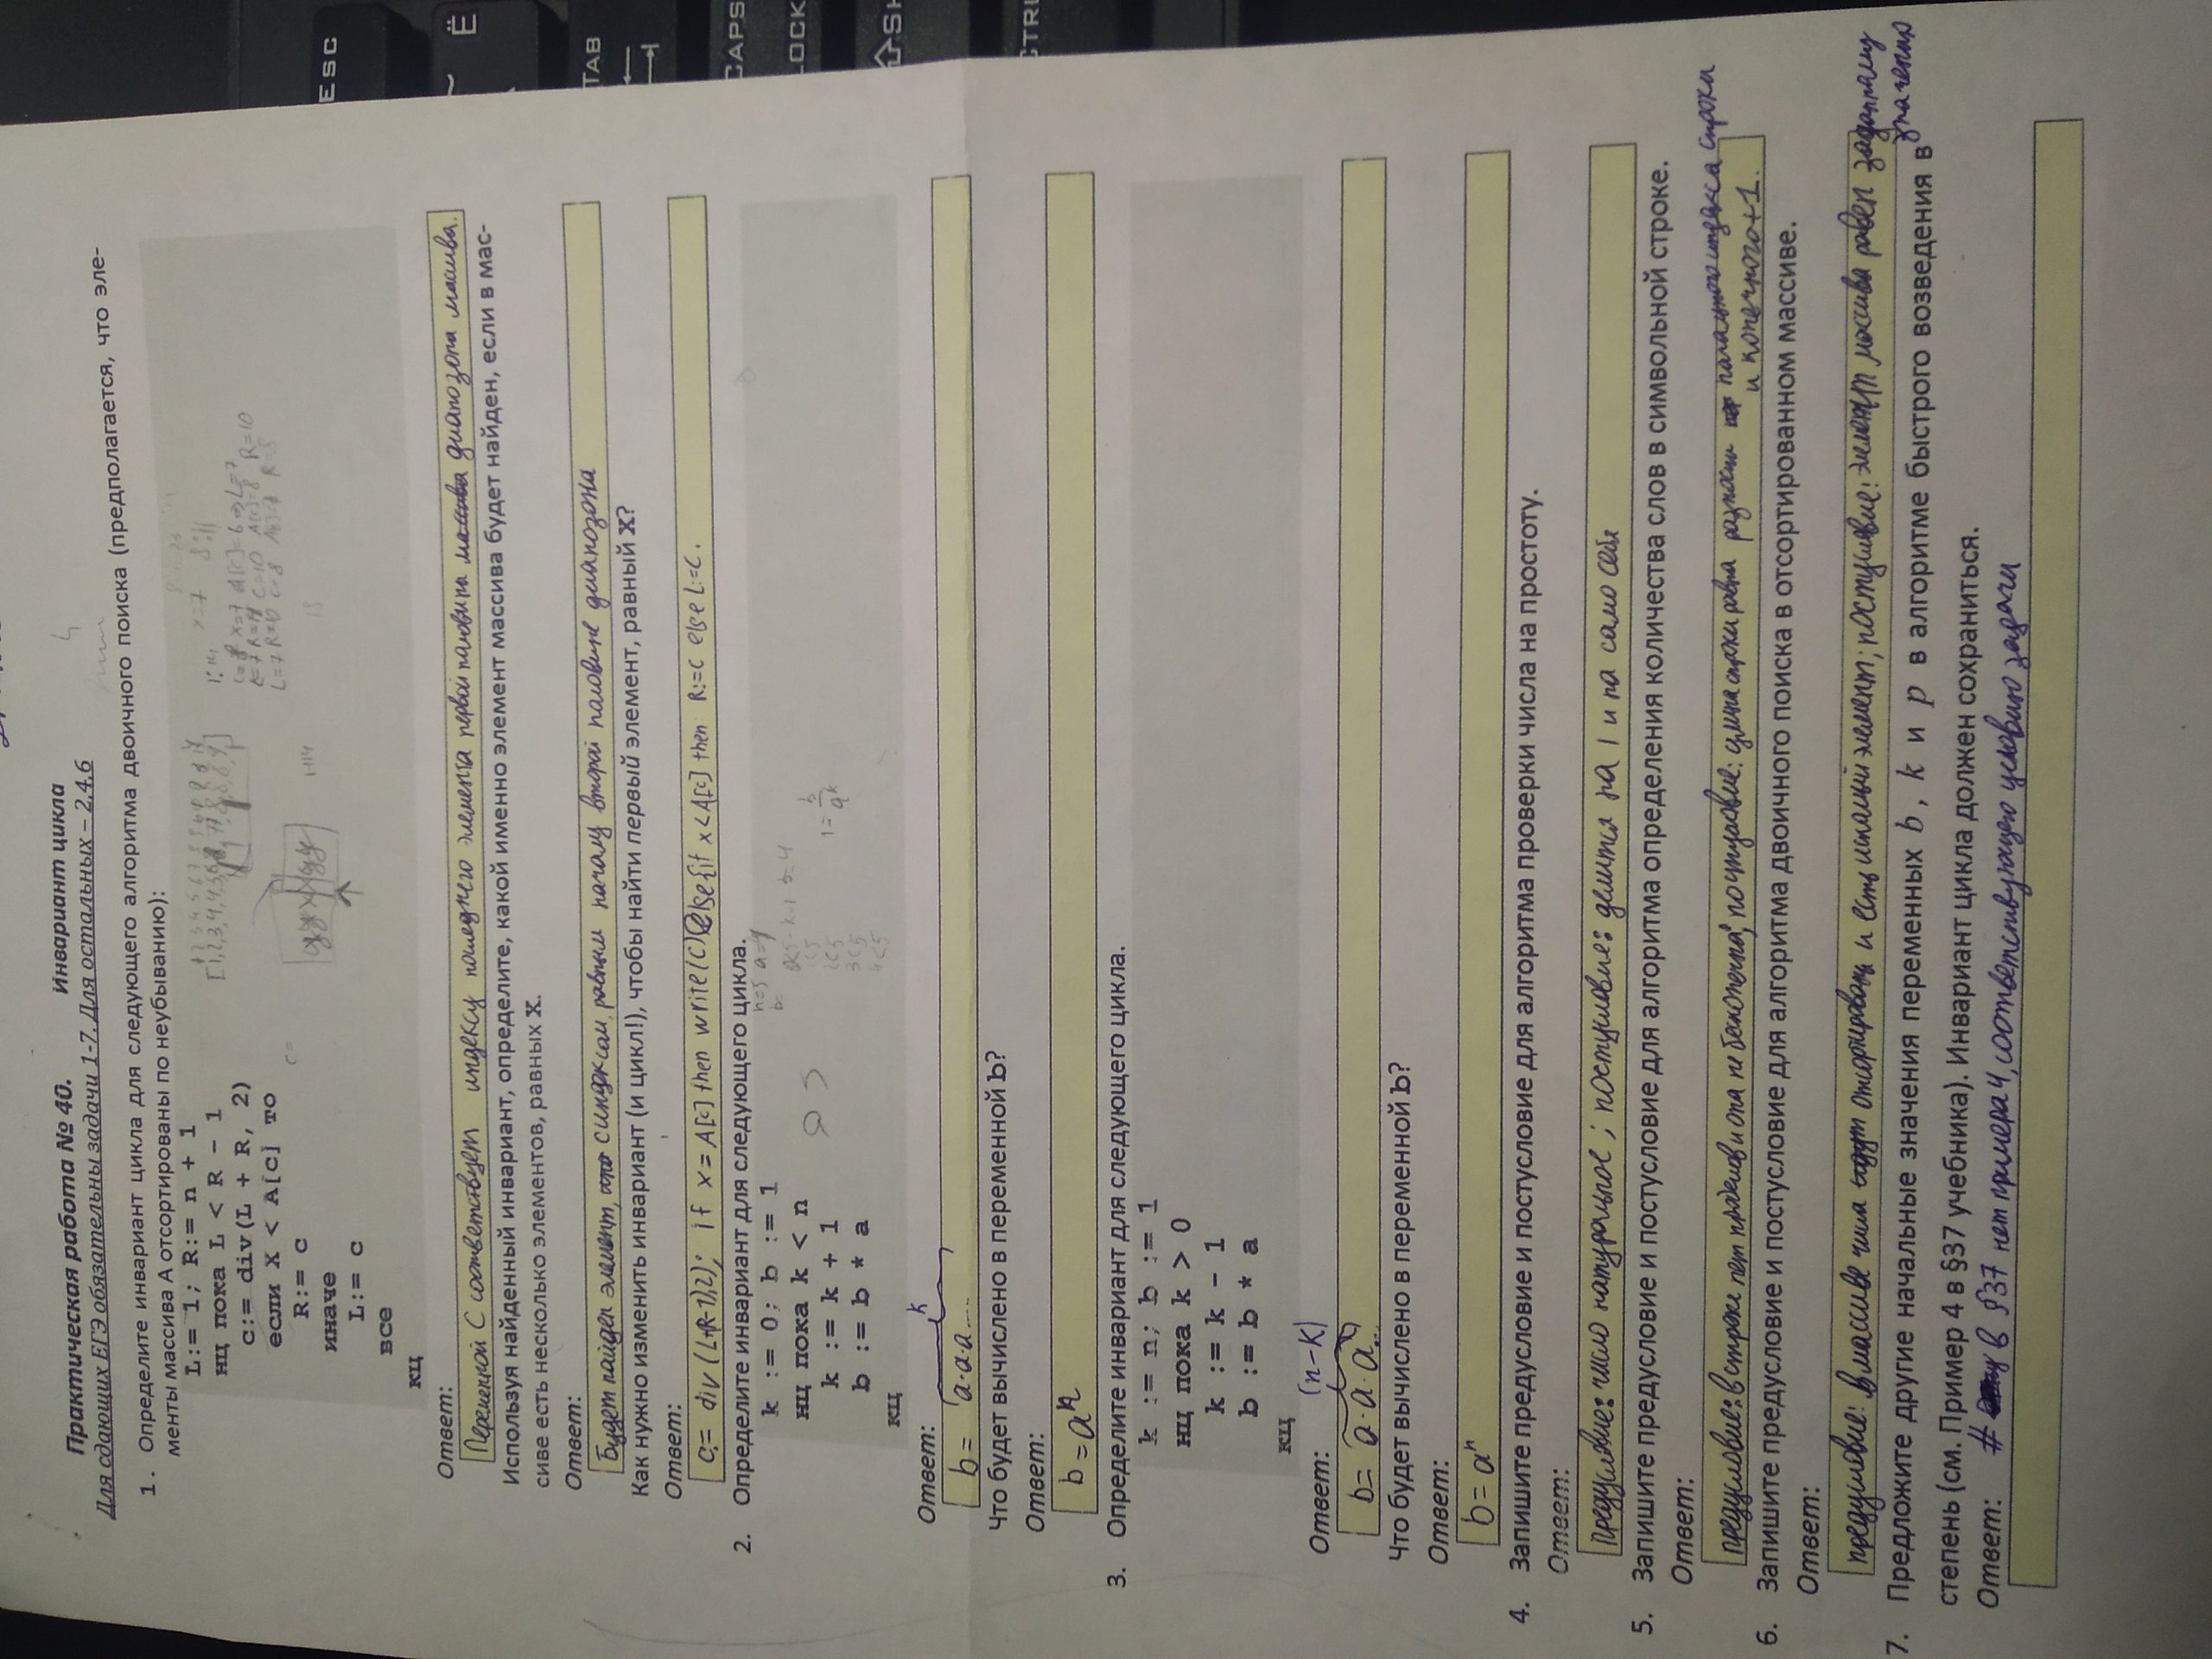 Практическая работа № 40. Инвариант цикла
Для сдающих ЕГЭ обязательны задачи 1-7. Для остальных – 2.4.6
1. Определите инвариант цикла для следующего алгоритма двоичного поиска (предполагается, что эле-
менты массива А отсортированы по неубыванию):
L:= 1; R:= n + 1
нц пока L < R - 1
c:= div(L + R, 2)
если X < A[c] то
R:= c
иначе
L:= c
все
кц
Ответ:
Переменной C соответствует индексу последнего элемента первой половины диапозона массива.
Используя найденный инвариант, определите, какой именно элемент массива будет найден, если в мас-
сиве есть несколько элементов, равных X.
Ответ:
Будет найден элемент, с индексом, равным началу второй половине диапозона
Как нужно изменить инвариант (и цикл!), чтобы найти первый элемент, равный X?
Ответ:
c:= div (L+R-1),2); if x = A[c] then write(c) else{if x<A[c] then R:=c else L:=C.
2. Определите инвариант для следующего цикла.
k := 0; b := 1
нц пока k < n
k := k + 1
b := b * a
кц
Ответ:
b = a·a·a.... k
Что будет вычислено в переменной b?
Ответ:
b = aⁿ
3. Определите инвариант для следующего цикла.
k := n; b := 1
нц пока k > 0
k := k - 1
b := b * a
кц
Ответ:
b = a·a·a... (n-k)
Что будет вычислено в переменной b?
Ответ:
b = aⁿ
4. Запишите предусловие и постусловие для алгоритма проверки числа на простоту.
Ответ:
Предусловие: число натуральное; постусловие: делится на 1 и на само себя
5. Запишите предусловие и постусловие для алгоритма определения количества слов в символьной строке.
Ответ:
предусловие: в строке нет пробелов и она не бесконечна; постусловие: длина строки равна разности начального индекса строки
и конечного+1.
6. Запишите предусловие и постусловие для алгоритма двоичного поиска в отсортированном массиве.
Ответ:
предусловие: в массиве числа отсортированы и есть искомый элемент; постусловие: элемент массива равен заданному
значению
7. Предложите другие начальные значения переменных b, k и p в алгоритме быстрого возведения в
степень (см. Пример 4 в §37 учебника). Инвариант цикла должен сохраниться.
Ответ: # в §37 нет примера 4, соответствующего условию задачи
ESC
~ Ё
TAB
CAPS
LOCK